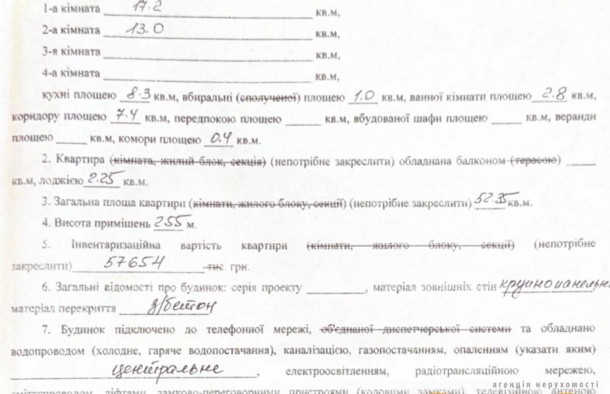 1-а кімната 17.2 кв.м,
2-а кімната 13.0 кв.м,
3-я кімната кв.м,
4-а кімната кв.м,
кухні площею 8.3 кв.м, вбиральні (сполученої) площею 1.0 кв.м, ванної кімнати площею 2.8 кв.м,
коридору площею 7.4 кв.м, передпокою площею кв.м, вбудованої шафи площею кв.м, веранди
площею кв.м, комори площею 0.4 кв.м.
2. Квартира (кімната, жилий блок, секція) (непотрібне закреслити) обладнана балконом (терасою)
кв.м, лоджією 2.25 кв.м.
3. Загальна площа квартири (кімнати, жилого блоку, секції) (непотрібне закреслити) 52.35 кв.м.
4. Висота приміщень 255 м.
5. Інвентаризаційна вартість квартири (кімнати, жилого блоку, секції) (непотрібне
закреслити) 57654 тис. грн.
6. Загальні відомості про будинок: серія проекту , матеріал зовнішніх стін крупнопанельн
матеріал перекриття з/бетон
7. Будинок підключено до телефонної мережі, об'єднаної диспетчерської системи та обладнано
водопроводом (холодне, гаряче водопостачання), каналізацією, газопостачанням, опаленням (указати яким)
центральне , електроосвітленням, радіотрансляційною мережею,
сміттєпроводом, ліфтами, замково-переговорними пристроями (кодовими замками), телевізійною антеною
агенція нерухомості